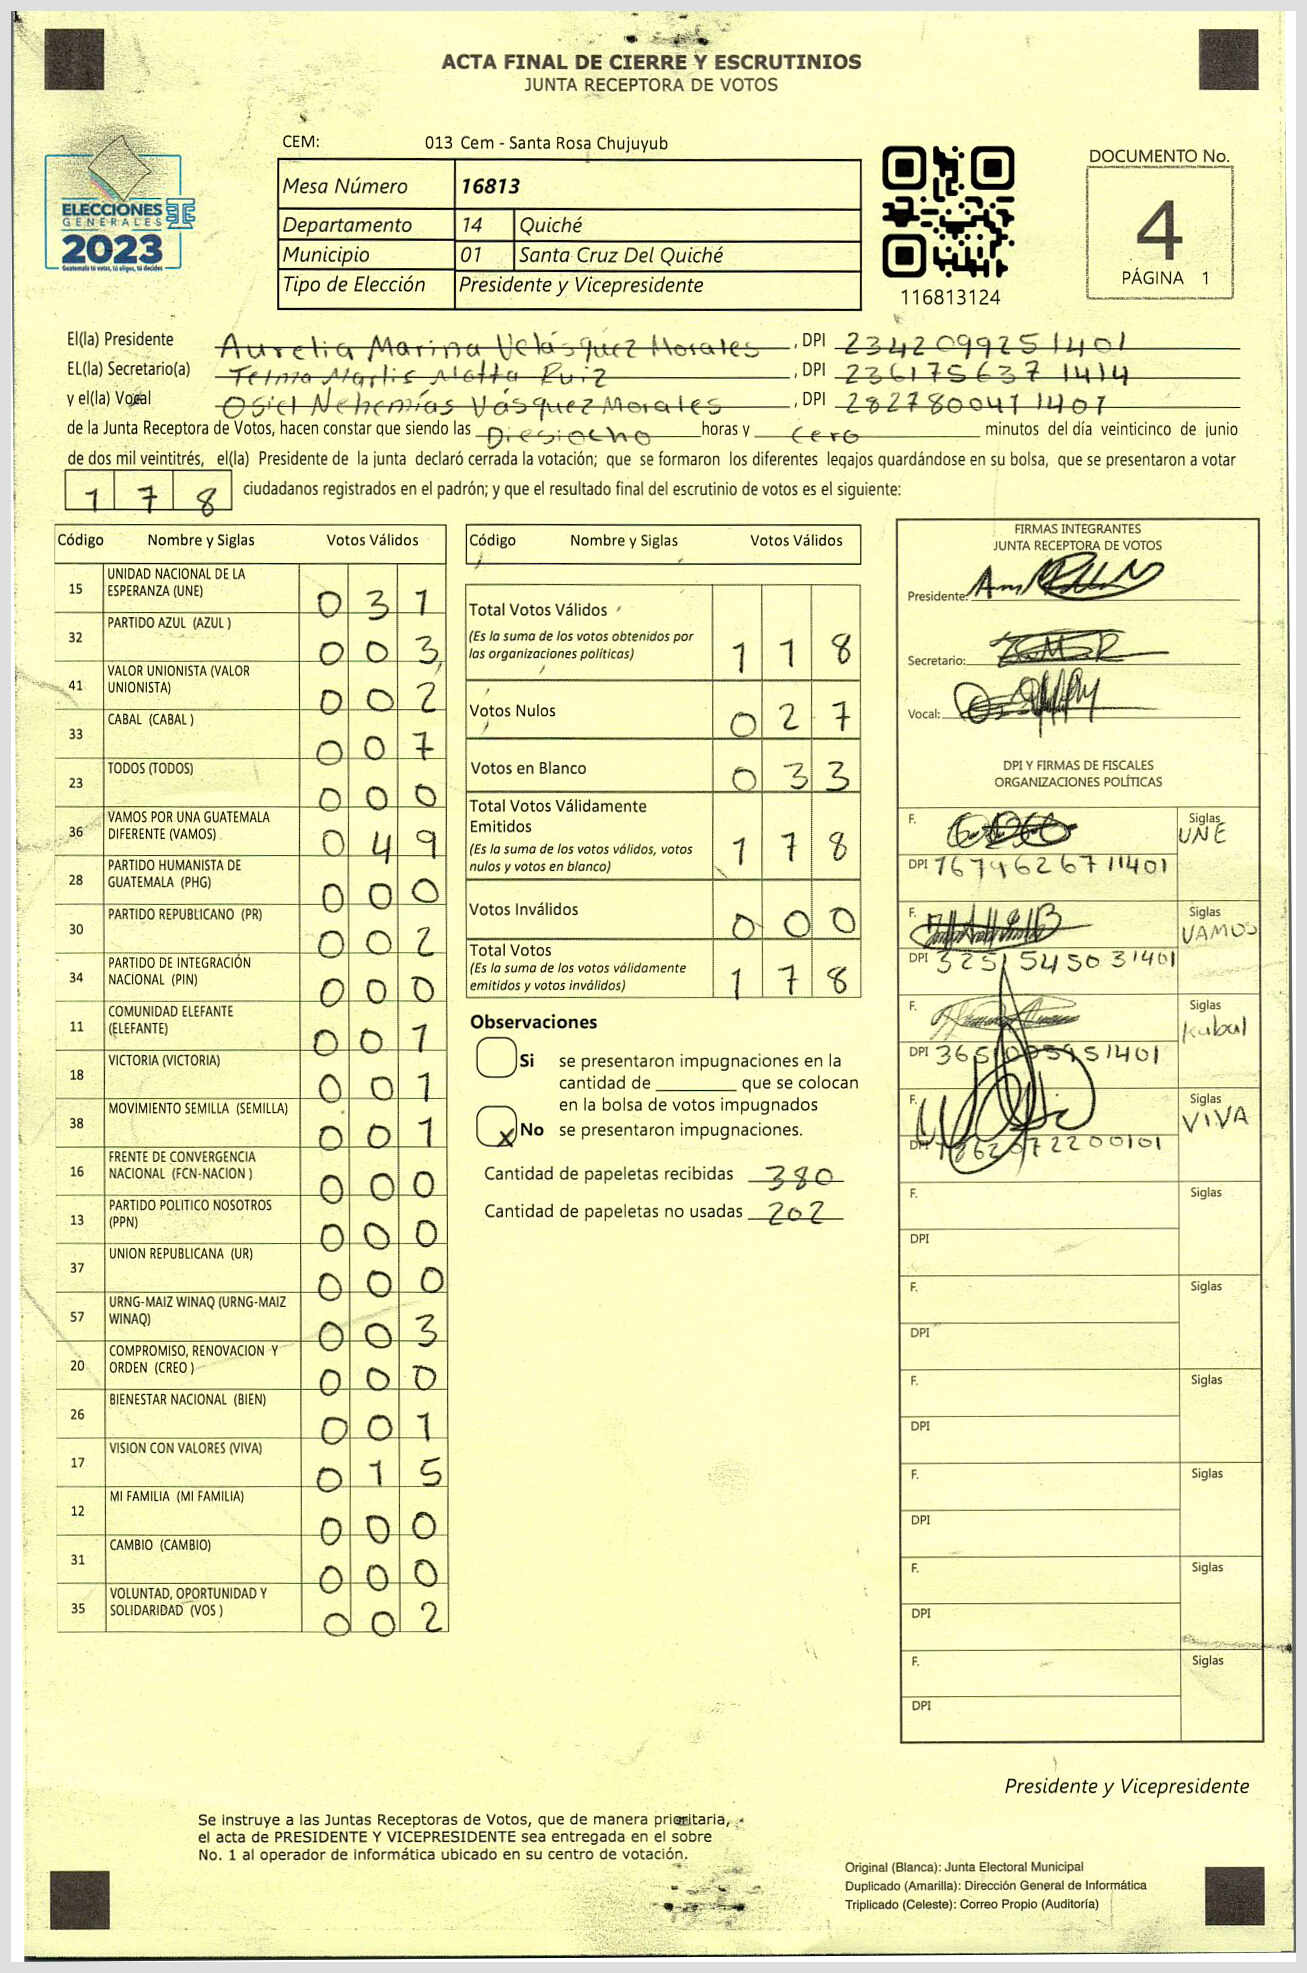 ACTA FINAL DE CIERRE Y ESCRUTINIOS
JUNTA RECEPTORA DE VOTOS
CEM: 013 Cem - Santa Rosa Chujuyub
Mesa Número 16813
Departamento 14 Quiché
Municipio 01 Santa Cruz Del Quiché
Tipo de Elección Presidente y Vicepresidente
ELECCIONES
GENERALES
2023
Guatemala tú votas, tú eliges, tú decides
116813124
DOCUMENTO No.
4
PÁGINA 1
El(la) Presidente Aurelia Marina Velásquez Morales, DPI 2342099251401
EL(la) Secretario(a) Telma Marlis Motta Ruiz, DPI 2361756371414
y el(la) Vocal Osiel Nehemías Vásquez Morales, DPI 2827800411401
de la Junta Receptora de Votos, hacen constar que siendo las Diesiocho horas y cero minutos del día veinticinco de junio
de dos mil veintitrés, el(la) Presidente de la junta declaró cerrada la votación; que se formaron los diferentes legajos guardándose en su bolsa, que se presentaron a votar
178 ciudadanos registrados en el padrón; y que el resultado final del escrutinio de votos es el siguiente:
Código Nombre y Siglas Votos Válidos
15 UNIDAD NACIONAL DE LA ESPERANZA (UNE) 031
32 PARTIDO AZUL (AZUL ) 003
41 VALOR UNIONISTA (VALOR UNIONISTA) 002
33 CABAL (CABAL ) 007
23 TODOS (TODOS) 000
36 VAMOS POR UNA GUATEMALA DIFERENTE (VAMOS) 049
28 PARTIDO HUMANISTA DE GUATEMALA (PHG) 000
30 PARTIDO REPUBLICANO (PR) 002
34 PARTIDO DE INTEGRACIÓN NACIONAL (PIN) 000
11 COMUNIDAD ELEFANTE (ELEFANTE) 001
18 VICTORIA (VICTORIA) 001
38 MOVIMIENTO SEMILLA (SEMILLA) 001
16 FRENTE DE CONVERGENCIA NACIONAL (FCN-NACION ) 000
13 PARTIDO POLITICO NOSOTROS (PPN) 000
37 UNION REPUBLICANA (UR) 000
57 URNG-MAIZ WINAQ (URNG-MAIZ WINAQ) 003
20 COMPROMISO, RENOVACION Y ORDEN (CREO ) 000
26 BIENESTAR NACIONAL (BIEN) 001
17 VISION CON VALORES (VIVA) 015
12 MI FAMILIA (MI FAMILIA) 000
31 CAMBIO (CAMBIO) 000
35 VOLUNTAD, OPORTUNIDAD Y SOLIDARIDAD (VOS ) 002
Código Nombre y Siglas Votos Válidos
Total Votos Válidos 118
(Es la suma de los votos obtenidos por
las organizaciones políticas)
Votos Nulos 027
Votos en Blanco 033
Total Votos Válidamente
Emitidos 178
(Es la suma de los votos válidos, votos
nulos y votos en blanco)
Votos Inválidos 000
Total Votos 178
(Es la suma de los votos válidamente
emitidos y votos inválidos)
Observaciones
Si se presentaron impugnaciones en la
cantidad de ________ que se colocan
en la bolsa de votos impugnados
x No se presentaron impugnaciones.
Cantidad de papeletas recibidas 380
Cantidad de papeletas no usadas 202
FIRMAS INTEGRANTES
JUNTA RECEPTORA DE VOTOS
Presidente:
Secretario:
Vocal:
DPI Y FIRMAS DE FISCALES
ORGANIZACIONES POLÍTICAS
F. Siglas UNE
DPI 1679626711401
F. Siglas VAMOS
DPI 3251545031401
F. Siglas Kabal
DPI
F. Siglas VIVA
DPI
F. Siglas
DPI
F. Siglas
DPI
F. Siglas
DPI
F. Siglas
DPI
F. Siglas
DPI
F. Siglas
DPI
Presidente y Vicepresidente
Se instruye a las Juntas Receptoras de Votos, que de manera prioritaria,
el acta de PRESIDENTE Y VICEPRESIDENTE sea entregada en el sobre
No. 1 al operador de informática ubicado en su centro de votación.
Original (Blanca): Junta Electoral Municipal
Duplicado (Amarilla): Dirección General de Informática
Triplicado (Celeste): Correo Propio (Auditoría)